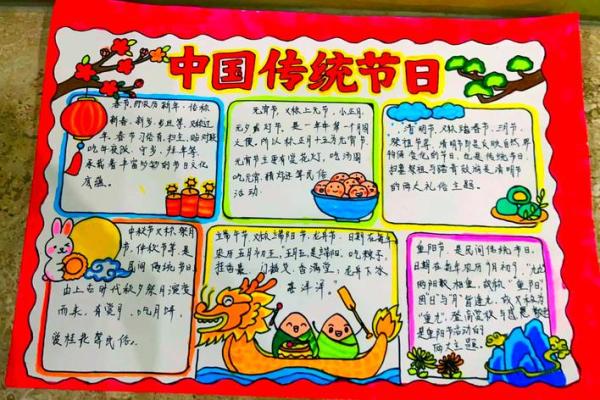 中国传统节日
春节,即农历新年,俗称
新春、新岁、
年。春节习俗有扫尘、贴对联
吃年夜饭、守岁、拜年等。
承载着丰富的节日文化
底蕴。
元宵节,又称上元节、小正月、
元夕或灯节,是一年第一个月圆
之夜,所以称正月十五为元宵节
元宵节主要有赏花灯、吃汤圆
吃元宵、猜灯谜等民俗
活动。
清明节,又称踏青节、三月节、
祭祖节等,清明节即是反映自然界
物候变化的节日,也是传统节日,
扫墓祭祖与踏青郊游是清明节
的两大礼俗主题。
中秋节又称祭月
节、仲秋节等,是
民间传统节日
由上古时代秋夕祭月演变
而来,有赏月、吃月饼、
赏桂花等民俗。
端午节,又称端阳节、龙舟节,日期在每年
农历五月初五,
挂菖蒲、
重阳节,是民间传统节日,
日期在每年农历9月初9,“九九”
两阳数相重,故叫“重阳”,
因日与月皆逢九,故又称为
“重九”。登高赏秋与感恩敬老
是重阳节活动的
两大主题。